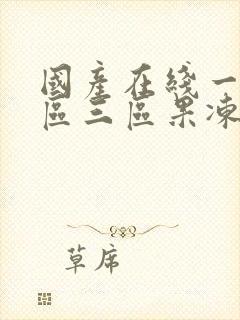 國產在綫一
區三區果凍
草席